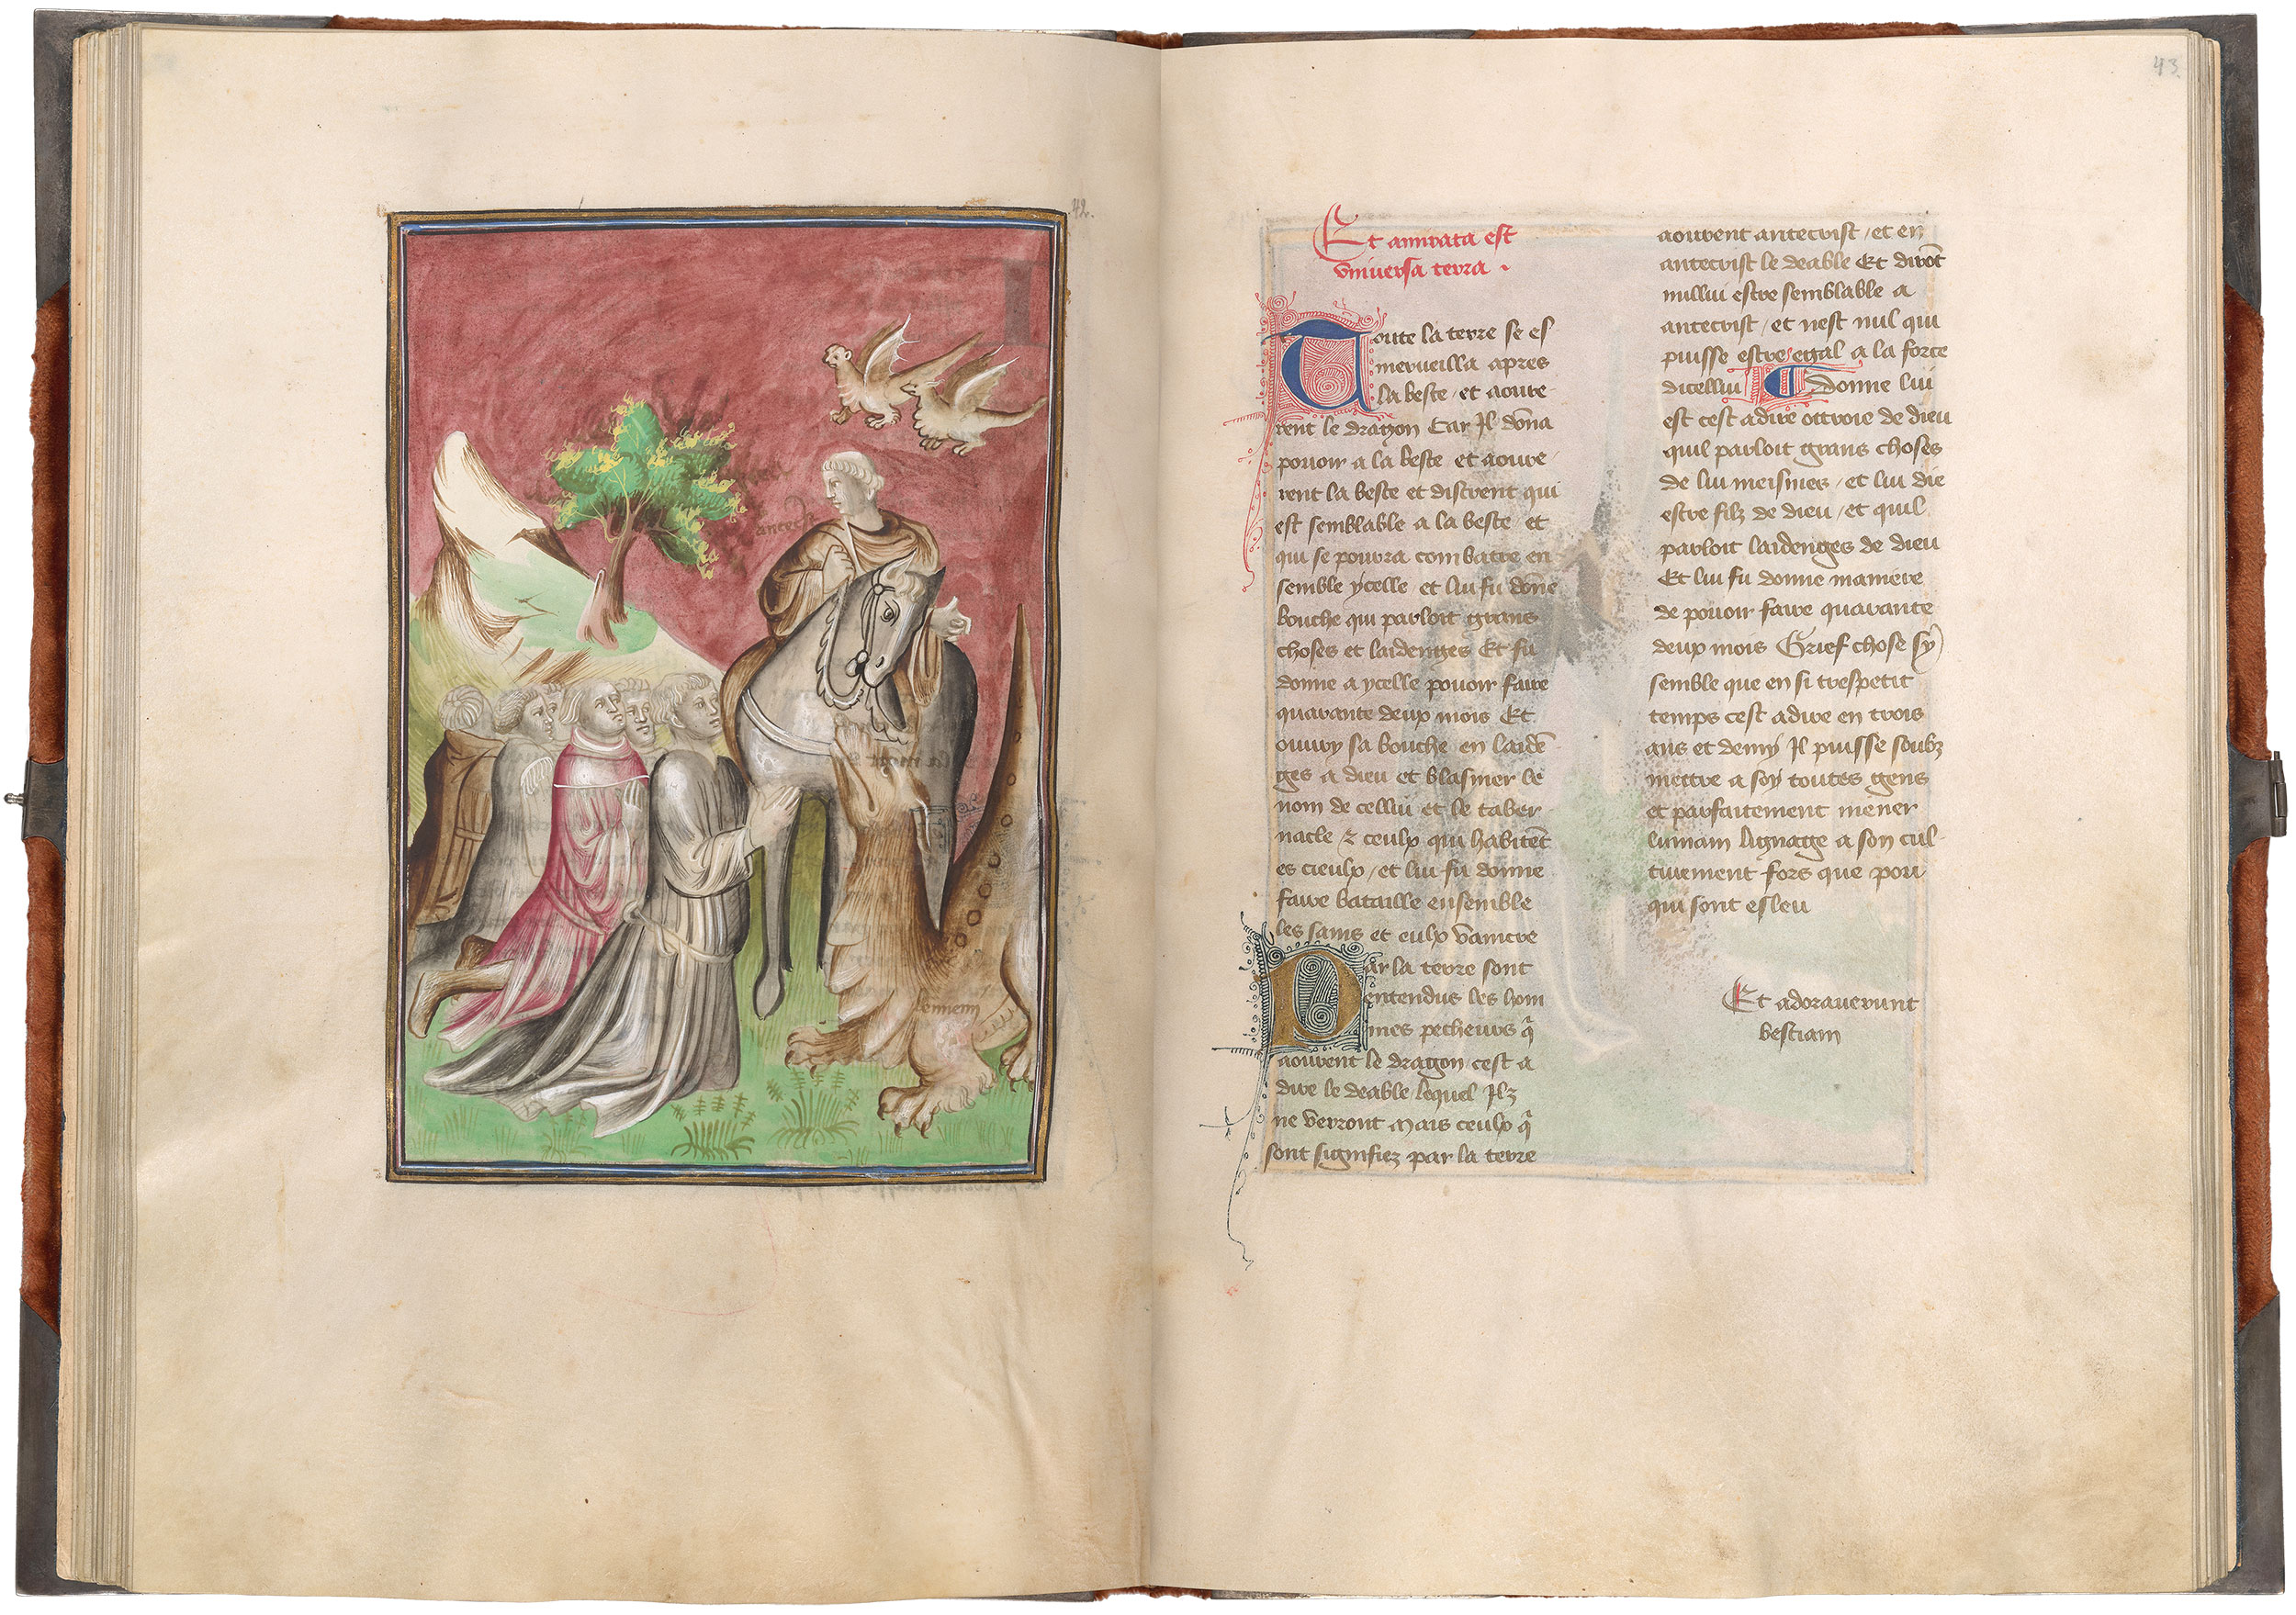 42.
antecrist
lennemi
43.
Et amirata est
vniuersa terra .
Toute la terre se es
merueilla apres
la beste / et aoure
rent le dragon Car Il dōna
pouoir a la beste et aoure
rent la beste et distrent qui
est semblable a la beste / et
qui se pourra combatre en
semble ycelle et lui fu dōne
bouche qui parloit grans
choses et laidenges Et fu
donne a ycelle pouoir faire
quarante deux mois Et
ouury sa bouche en laidē
ges a dieu et blasmer le
nom de cellui et le taber
nacle & ceulx qui habitēt
es cieulx / et lui fu donne
faire bataille ensemble
les sains et eulx vaincre
Par la terre sont
entendus les hom
mes pecheurs q̄
aourent le dragon cest a
dire le deable lequel Ilz
ne verront Mais ceulx q̄
sont signifiez par la terre
aourent antecrist / et en
antecrist le deable Et dirōt
nullui estre semblable a
antecrist / et nest nul qui
puisse estre egal a la force
dicellui Et donne lui
est cest adire ottroie de dieu
quil parloit grans choses
de lui meismes / et lui die
estre filz de dieu / et quil
parloit laidenges de dieu
Et lui fu donne maniere
de pouoir faire quarante
deux mois Grief chose sy
semble que en si trespetit
temps cest adire en trois
ans et demy Il puisse soubz
mettre a soy toutes gens
et parfaitement mener
lumain lignage a son cul
tiuement fors que pou
qui sont esleu
Et adorauerunt
bestiam